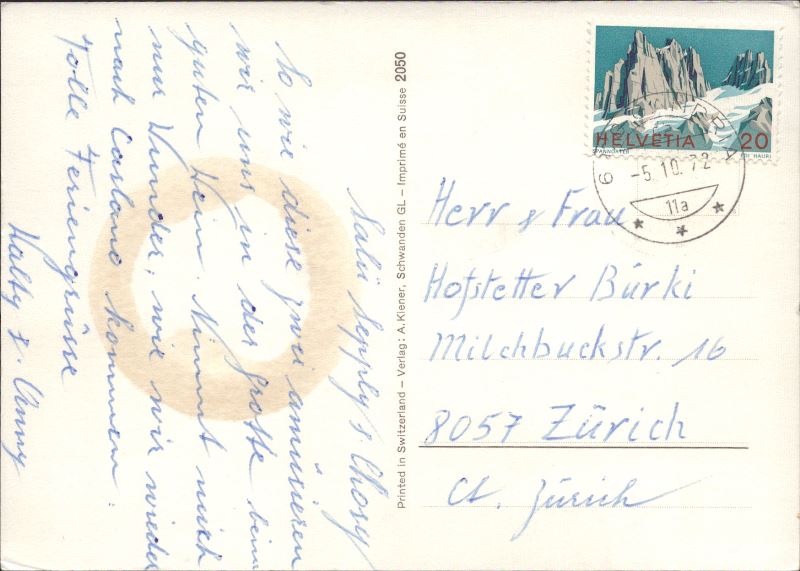 Salü Sepply & Rosy
So wie diese zwei amüsieren
wir uns in der Grotte beim
guten Wein. Nimmt mich
nur Wunder, wie wir wieder
nach Caslano kommen.
Tolle Feriengrüsse
Walty & Anny
Printed in Switzerland – Verlag: A. Kiener, Schwanden GL – Imprimé en Suisse 2050
HELVETIA 20
SPANNÖRTER
HAURI
-5.10.72
11a
Herr & Frau
Hofstetter Bürki
Milchbuckstr. 16
8057 Zürich
Ct. Zürich